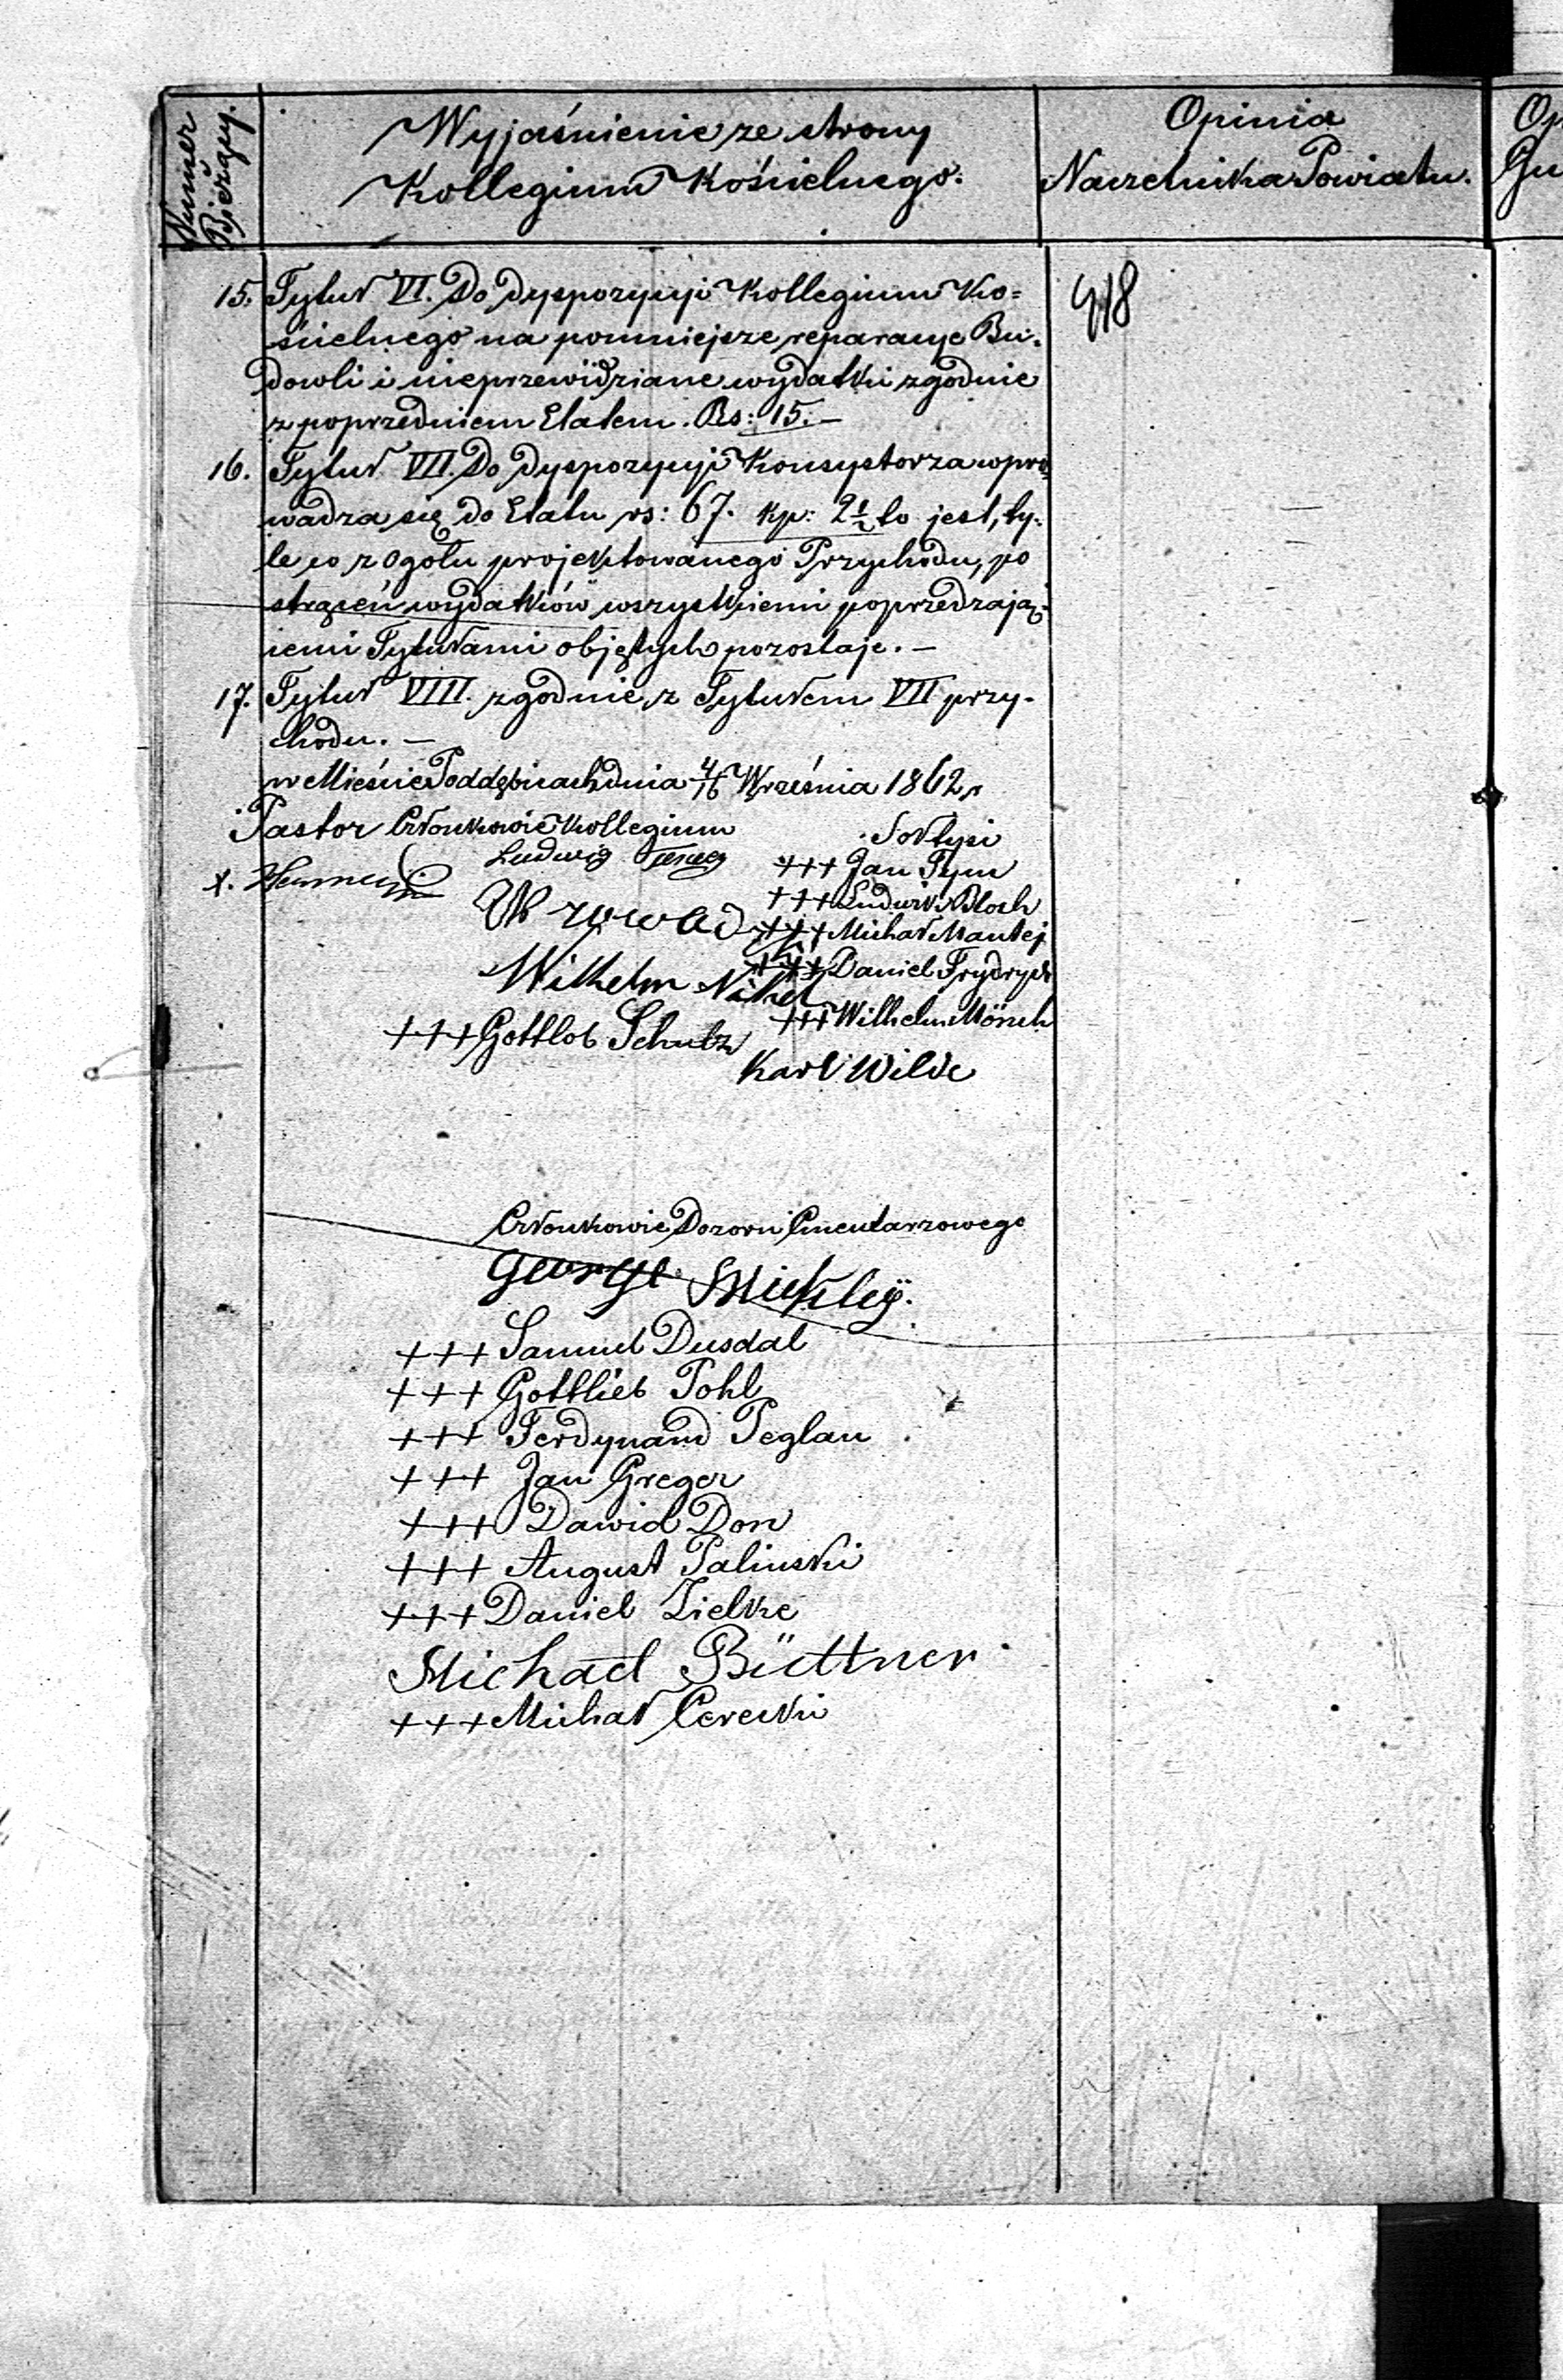 Numer Bieżący.
Wyjaśnienie ze strony
Kollegium Kościelnego.
Opinia
Naczelnika Powiatu.
15. Tytuł VI. Do dyspozycyi Kollegium Ko=
ścielnego na pomniejsze reparacye Bu-
dowli i nieprzewidziane wydatki zgodnie
z poprzedniem Etatem. Rs: 15.—
418
16. Tytuł VII. Do dyspozycyi Konsystorza wpro-
wadza się do Etatu rs: 67. kp: 2½ to jest, ty-
le co z ogołu projektowanego Przychodu, po
strąceń wydatków wszystkiemi poprzedzają-
cemi Tytułami objętych pozostaje. —
17. Tytuł VIII. zgodnie z Tytułem VII przy-
chodu. —
w Mieście Poddębicach dnia 4/16 Września 1862 r
Pastor Członkowie Kollegium
Sołtysi
Ludwig
+++ Jan Tym
X.
+++ Ludwik Bloch
+++ Michał Mantej
+++ Daniel Frydrych
Wilhelm Nikel
+++ Wilhelm Mönch
+++ Gottlob Schulz
Karl Wilde
Członkowie Dozoru Cmentarzowego
George Mickley.
+++ Samuel Dusdal
+++ Gottlieb Pohl
+++ Ferdynand Peglau
+++ Jan Greger
+++ Dawid Don
+++ August Palinski
+++ Daniel Zielke
Michael Büttner
+++ Michał Cerecki